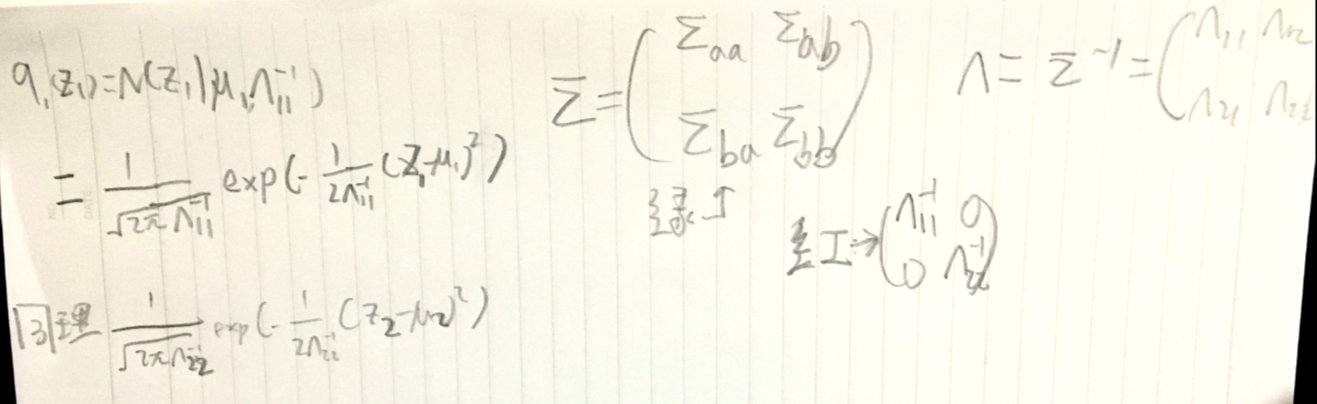 q₁(z₁)=N(z₁|μ₁,Λ₁₁⁻¹)
= 1/√(2πΛ₁₁⁻¹) exp(-1/(2Λ₁₁⁻¹)(z₁-μ₁)²)
同理 1/√(2πΛ₂₂⁻¹) exp(-1/(2Λ₂₂⁻¹)(z₂-μ₂)²)
Σ=(Σaa Σab
Σba Σbb)
绿↑
Λ=Σ⁻¹=(Λ₁₁ Λ₁₂
Λ₂₁ Λ₂₂)
红→(Λ₁₁⁻¹ 0
0 Λ₂₂⁻¹)